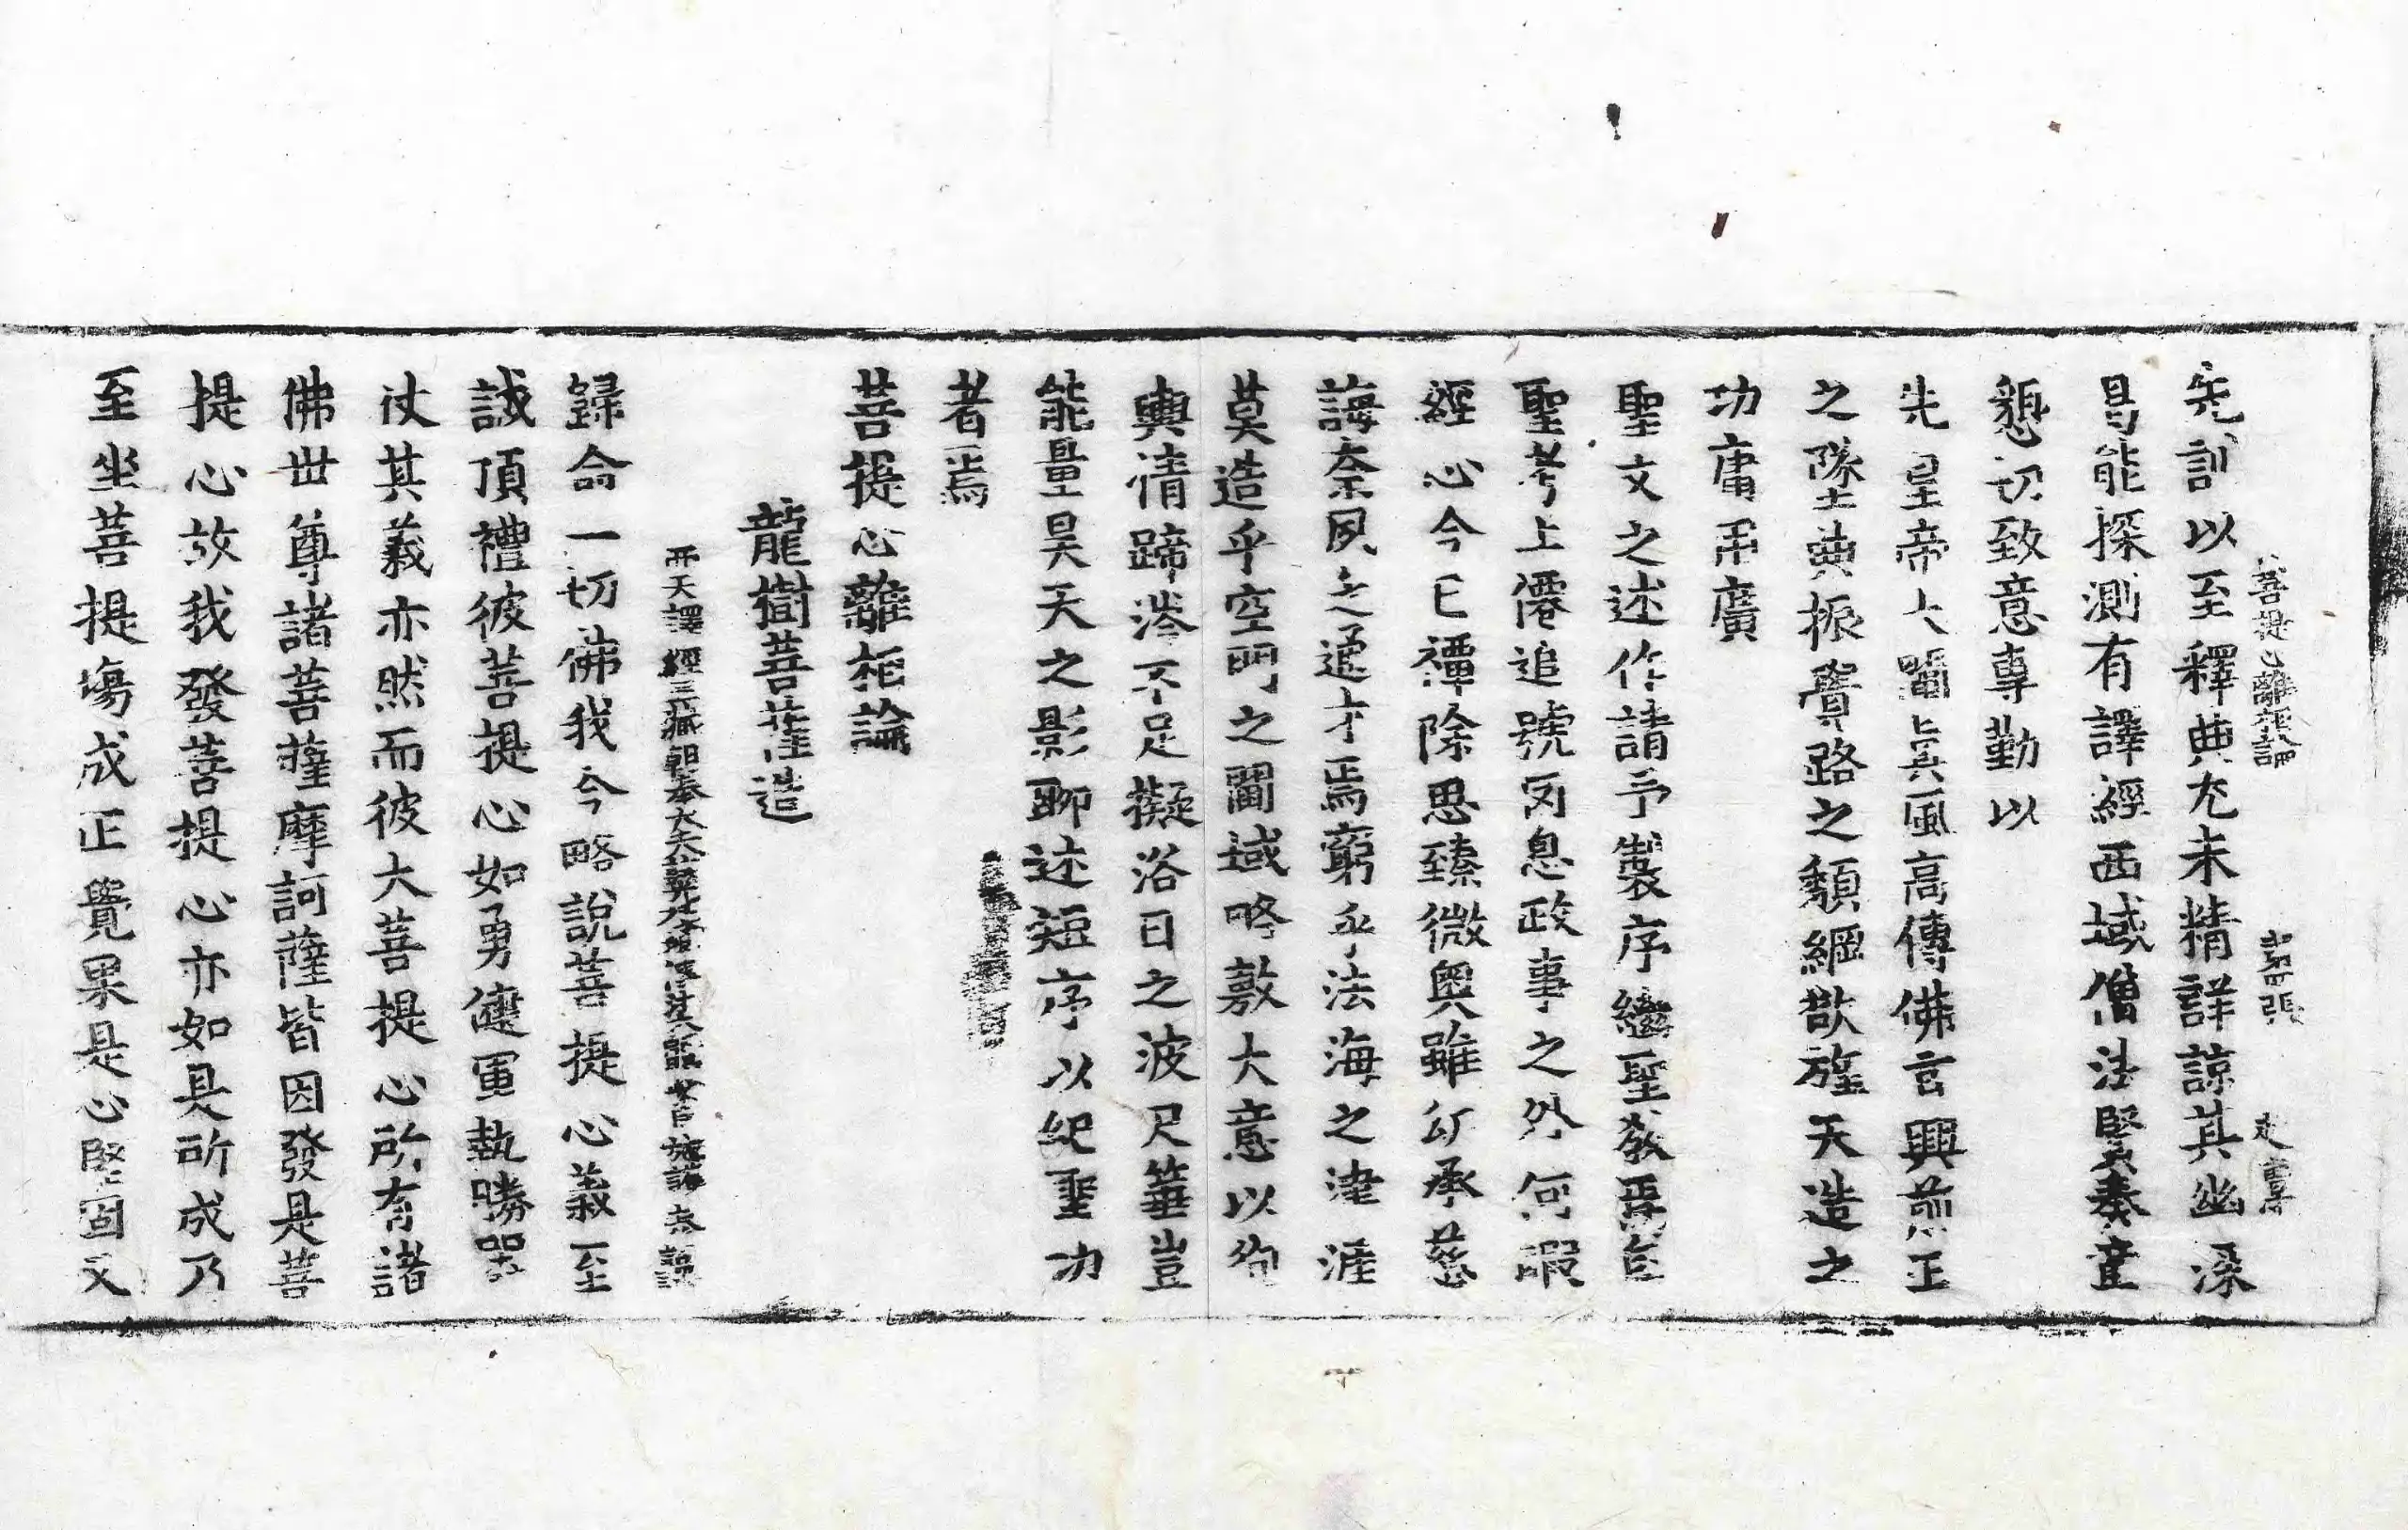 菩提心離相論 第四張 起
先訓以至釋典尤未精詳諒其幽深
曷能探測有譯經西域僧法賢奏章
懇切致意專勤以
先皇帝大闡眞風高傳佛言興前王
之墜典振覺路之頹綱歆旌天造之
功庸用廣
聖文之述作請予製序繼聖教焉自
聖考上僊追號罔息政事之外何暇
經心今已禫除思臻微奧雖仰承慈
誨奈夙乏通才焉窮乎法海之津涯
莫造乎空門之閫域略敷大意以徇
輿情蹄涔不足擬浴日之波尺箠豈
能量昊天之影聊述短序以紀聖功
者焉
菩提心離相論
龍樹菩薩造
西天譯經三藏朝奉大夫試光祿卿傳法大師賜紫臣施護奉 詔譯
歸命一切佛我今略說菩提心義至
誠頂禮彼菩提心如勇健軍執勝器
仗其義亦然而彼大菩提心所有諸
佛世尊諸菩薩摩訶薩皆因發是菩
提心故我發菩提心亦如是所成乃
至坐菩提場成正覺果是心堅固又